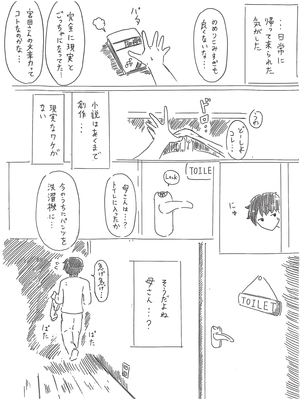 …日常に
帰って来られた
気がした
のめりこみすぎも
良くないな…
パタ
完全に現実と
ごっちゃになってた
宮田さんの文章力って
コトなのかな…
うわ
どーしよ
コレ…
ドロ
小説はあくまで
創作…
現実なワケが
ない
TOILET
Lock
母さんは…?
トイレに入ったか
今のうちにパンツを
洗濯機に…
にゅ
TOILET
そうだよね
母さん…?
急げ急げ…
ぱた
ぱた